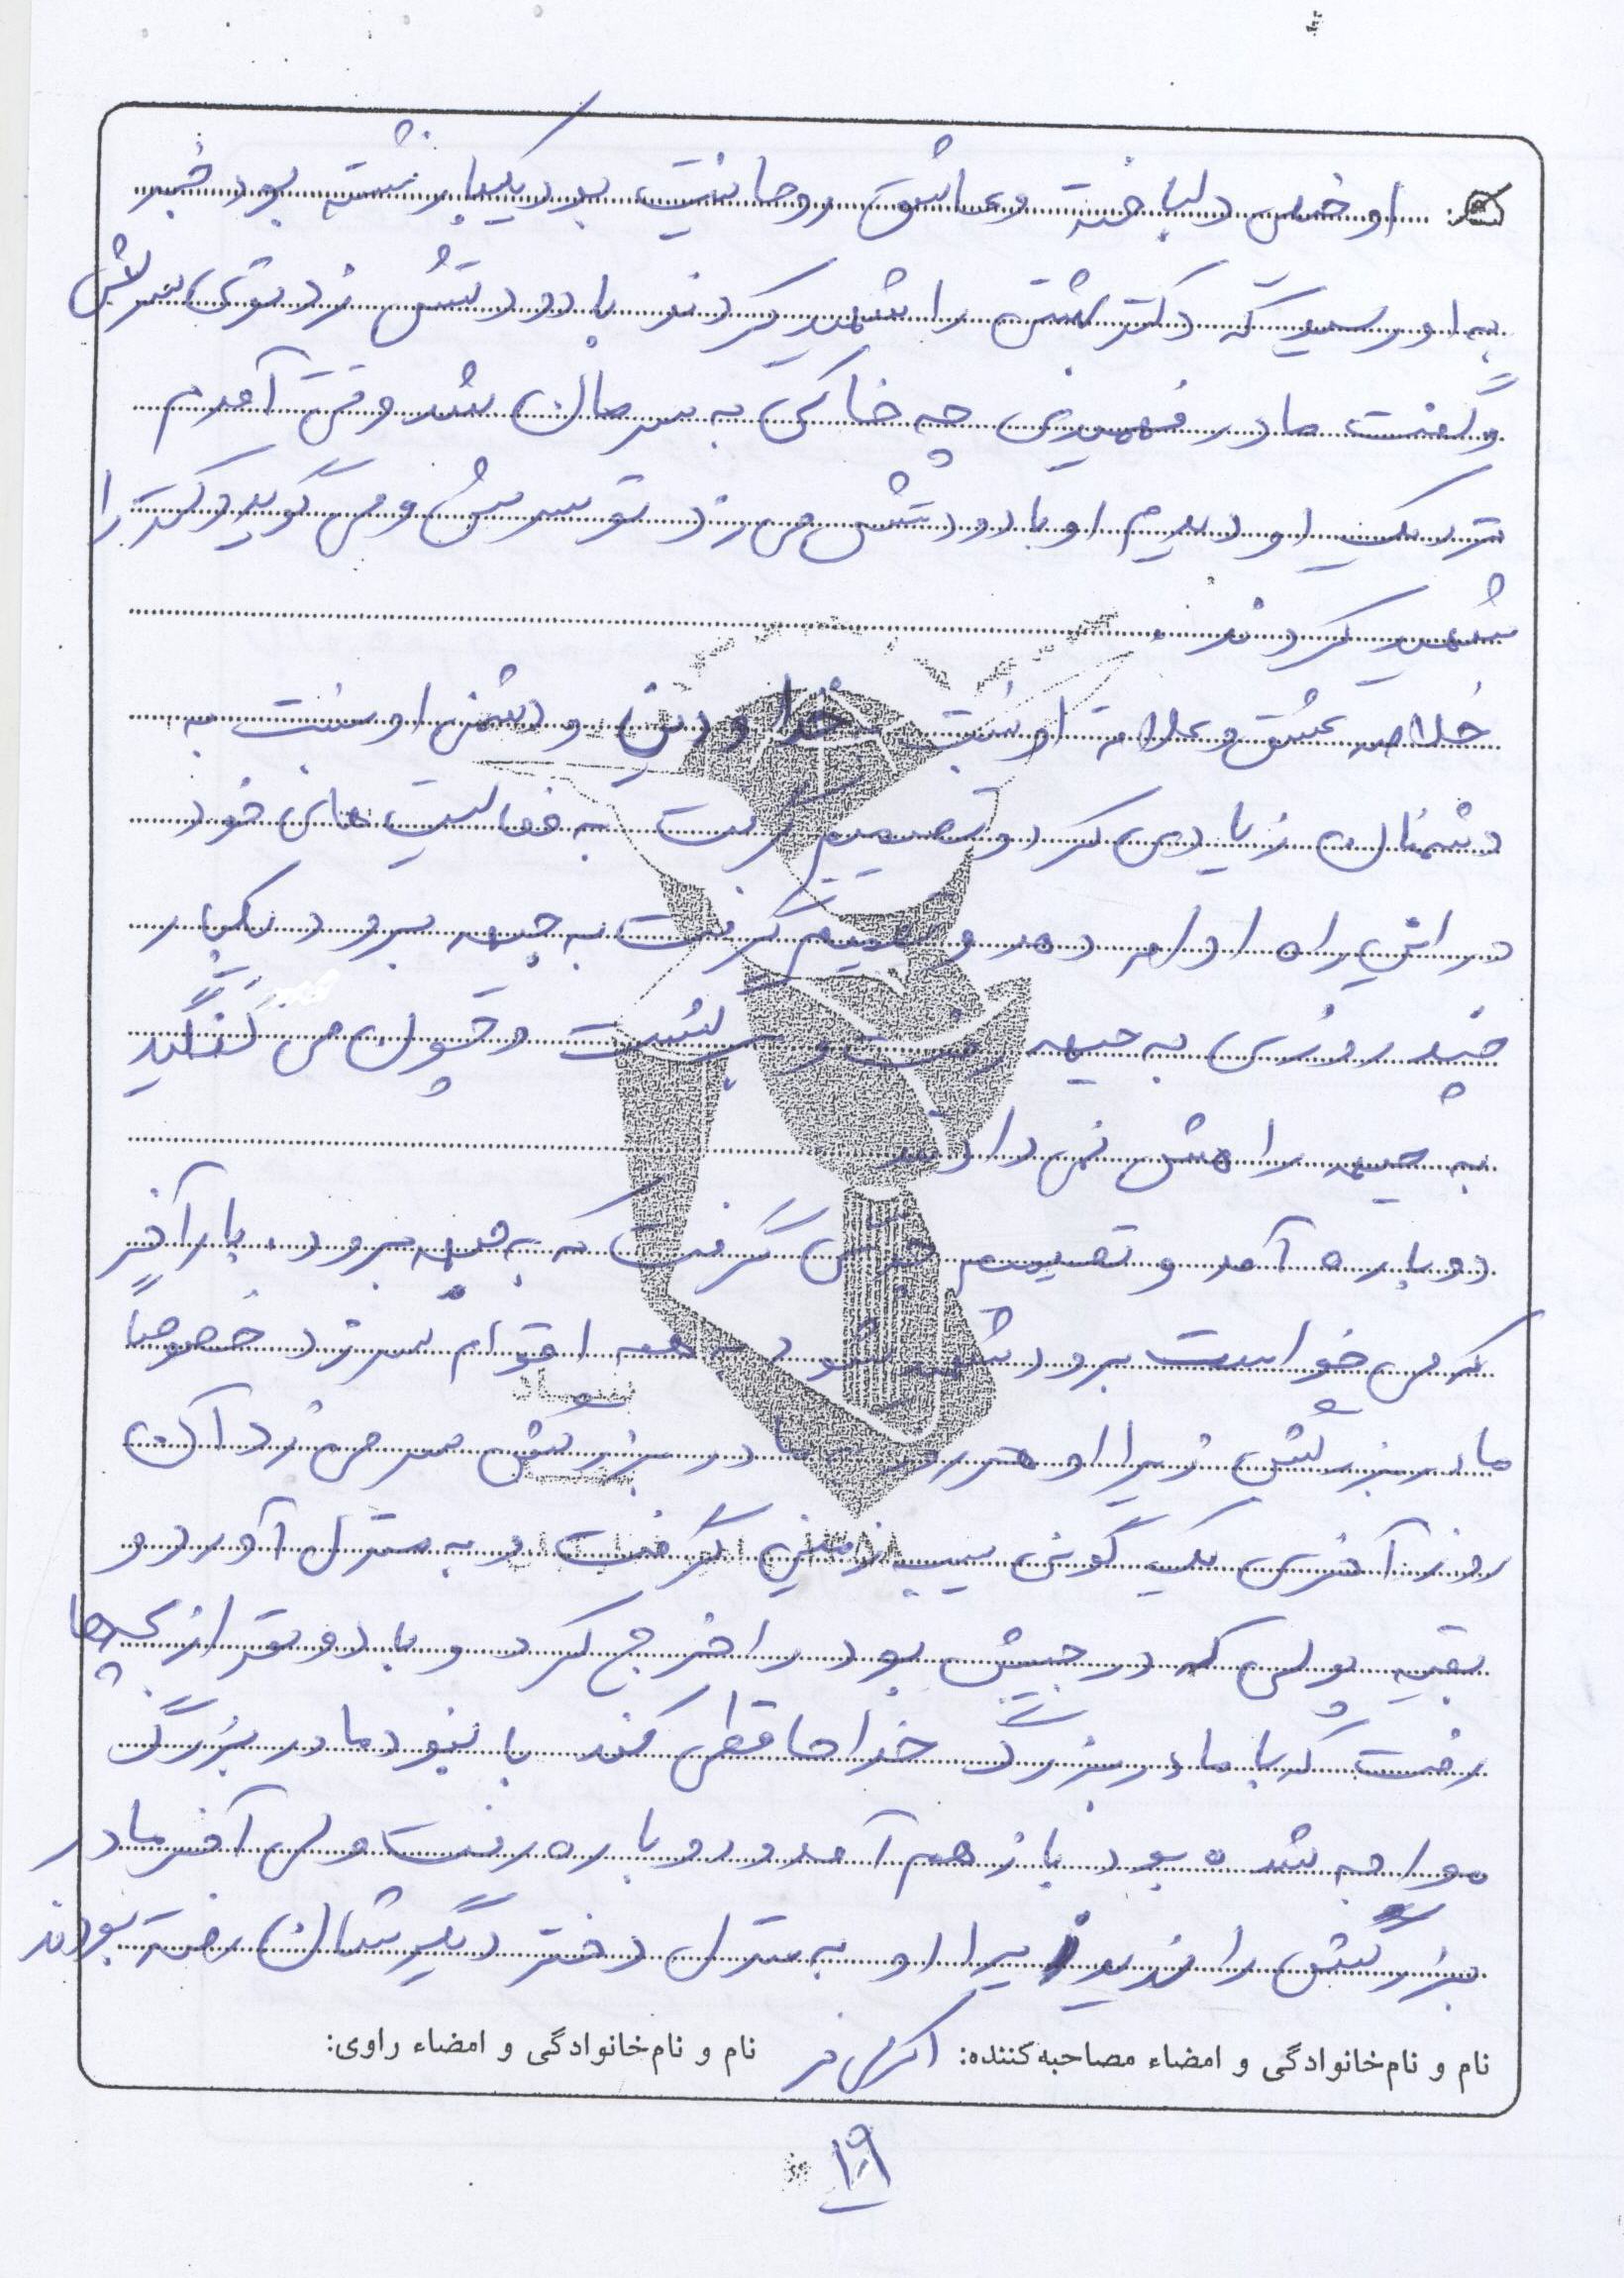 او خیلی دلباخته و عاشق روحانیت بود یکبار نشته بود خبر
به او رسید که دکتر بهشتی را شهید کردند با دو دستش زد توی سرش
و گفت مادر فهمیدی چه خاکی به سرمان شد وقتی آمدم
نزدیک او دیدم او با دو دستش می زد تو سرش و می گوید دکتر را
شهید کردند.
خلاصه عشق و علاقه او نسبت به خدا و دین و دشمنی او نسبت به
دشمنان زیادی کرد و تصمیم گرفت به فعالیت های خود
در این راه ادامه دهد و تصمیم گرفت به جبهه برود یکبار
چند روزی به جبهه رفت و برگشت و چون می گفتید
به جبهه راهش نمی دادند
دوباره آمد و تصمیم جدی گرفت که به جبهه برود. بار آخر
که می خواست برود شهید شود به همه اقوام سر زد خصوصاً
مادر بزرگش زیرا او هر روز به مادر بزرگش سر می زد آن
روز آخری یک گونی سیب زمینی گرفت و به منزل آورد و
بقیه پولی که در جیبش بود را خرج کرد و با دو نفر از بچه ها
رفت که با مادر بزرگ خداحافظی کند با نبود مادر بزرگ
مواجه شده بود باز هم آمد و دوباره رفت ولی آخر مادر
بزرگش را ندید زیرا او به منزل دختر دیگرشان رفته بودند
نام و نام‌خانوادگی و امضاء مصاحبه‌کننده: نام و نام‌خانوادگی و امضاء راوی:
۱۹